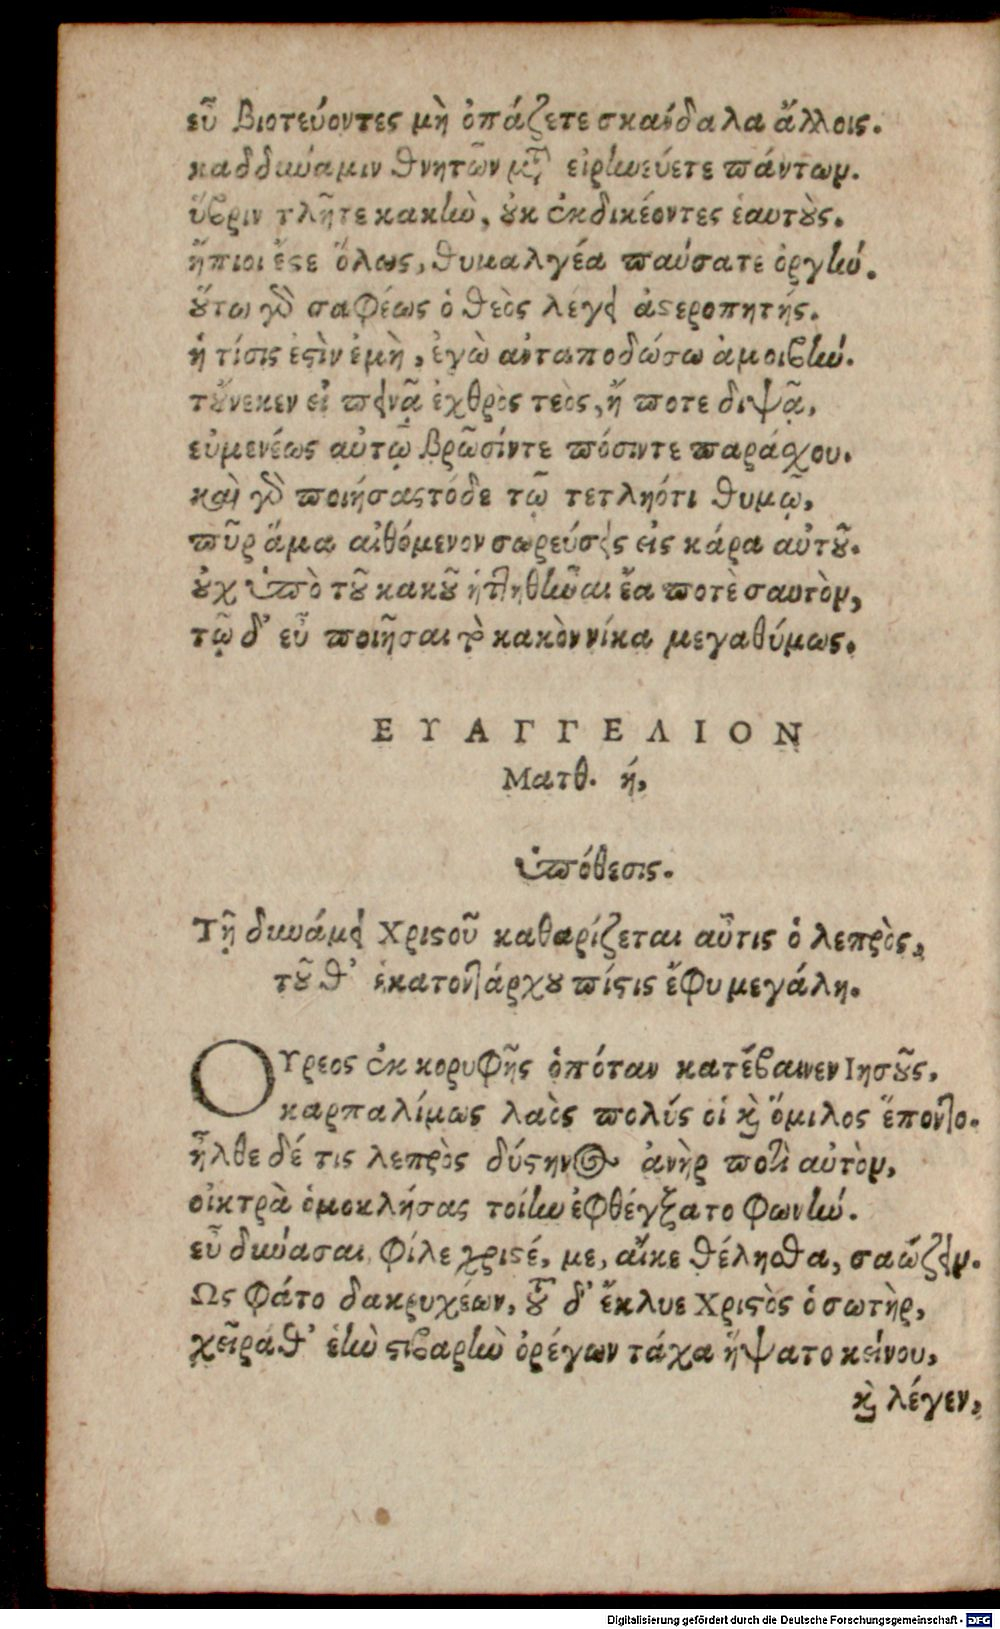 εὖ βιοτεύοντες μὴ ὀπάζετε σκαύδαλα ἄλλοις.
καδδύναμιν θνητῶν μετ' εἰρηνεύετε πάντων.
ὕβριν τλῆτε κακὴν, οὐκ ἐκδικέοντες ἑαυτοὺς.
ἤπιοι ἔστε ὅλως, θυμαλγέα παύσατε ὀργήν.
οὕτω γὰρ σαφέως ὁ θεὸς λέγει ἀστεροπητής.
ἡ τίσις ἐστὶν ἐμὴ, ἐγὼ ἀνταποδώσω ἀμοιβήν.
τοὔνεκεν εἰ πεινᾷ ἐχθρὸς τεὸς, ἤ ποτε διψᾷ,
εὐμενέως αὐτῷ βρῶσίντε πόσιντε παράσχου.
καὶ γὰρ ποιήσας τόδε τῷ τετληότι θυμῷ,
πῦρ ἅμα αἰθόμενον σωρεύσεις εἰς κάρα αὐτοῦ.
οὐχ ὑπὸ τοῦ κακοῦ ἡττηθῆναι ἔα ποτὲ σαυτὸν,
τῷ δ' εὖ ποιῆσαι τὸ κακὸν νίκα μεγαθύμως.
ΕΥΑΓΓΕΛΙΟΝ
Ματθ. ή,
ὑπόθεσις.
Τῇ δυνάμει Χριστοῦ καθαρίζεται αὖτις ὁ λεπρὸς,
τοῦ θ' ἑκατοντάρχου πίστις ἔφυ μεγάλη.
ΟΥρεος ἐκ κορυφῆς ὁπόταν κατέβαινεν Ιησοῦς,
καρπαλίμως λαὸς πολύς οἱ καὶ ὅμιλος ἕποντο.
ἦλθε δέ τις λεπρὸς δύστηνος ἀνὴρ ποτὶ αὐτὸν,
οἰκτρὰ ὁμοκλήσας τοίην ἐφθέγξατο φωνήν.
εὖ δύνασαι, φίλε χριστέ, με, αἴκε θέλησθα, σαώζειν.
Ως φάτο δακρυχέων, τοῦ δ' ἔκλυε Χριστὸς ὁ σωτὴρ,
χεῖρά θ' ἑὴν στιβαρὴν ὀρέγων τάχα ἥψατο κείνου,
καὶ λέγεν,
Digitalisierung gefördert durch die Deutsche Forschungsgemeinschaft - DFG